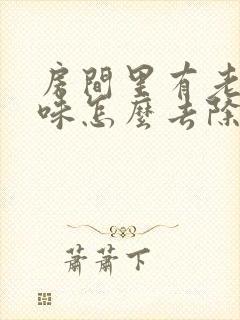 房間里有老
味怎麼去除
蕭蕭下